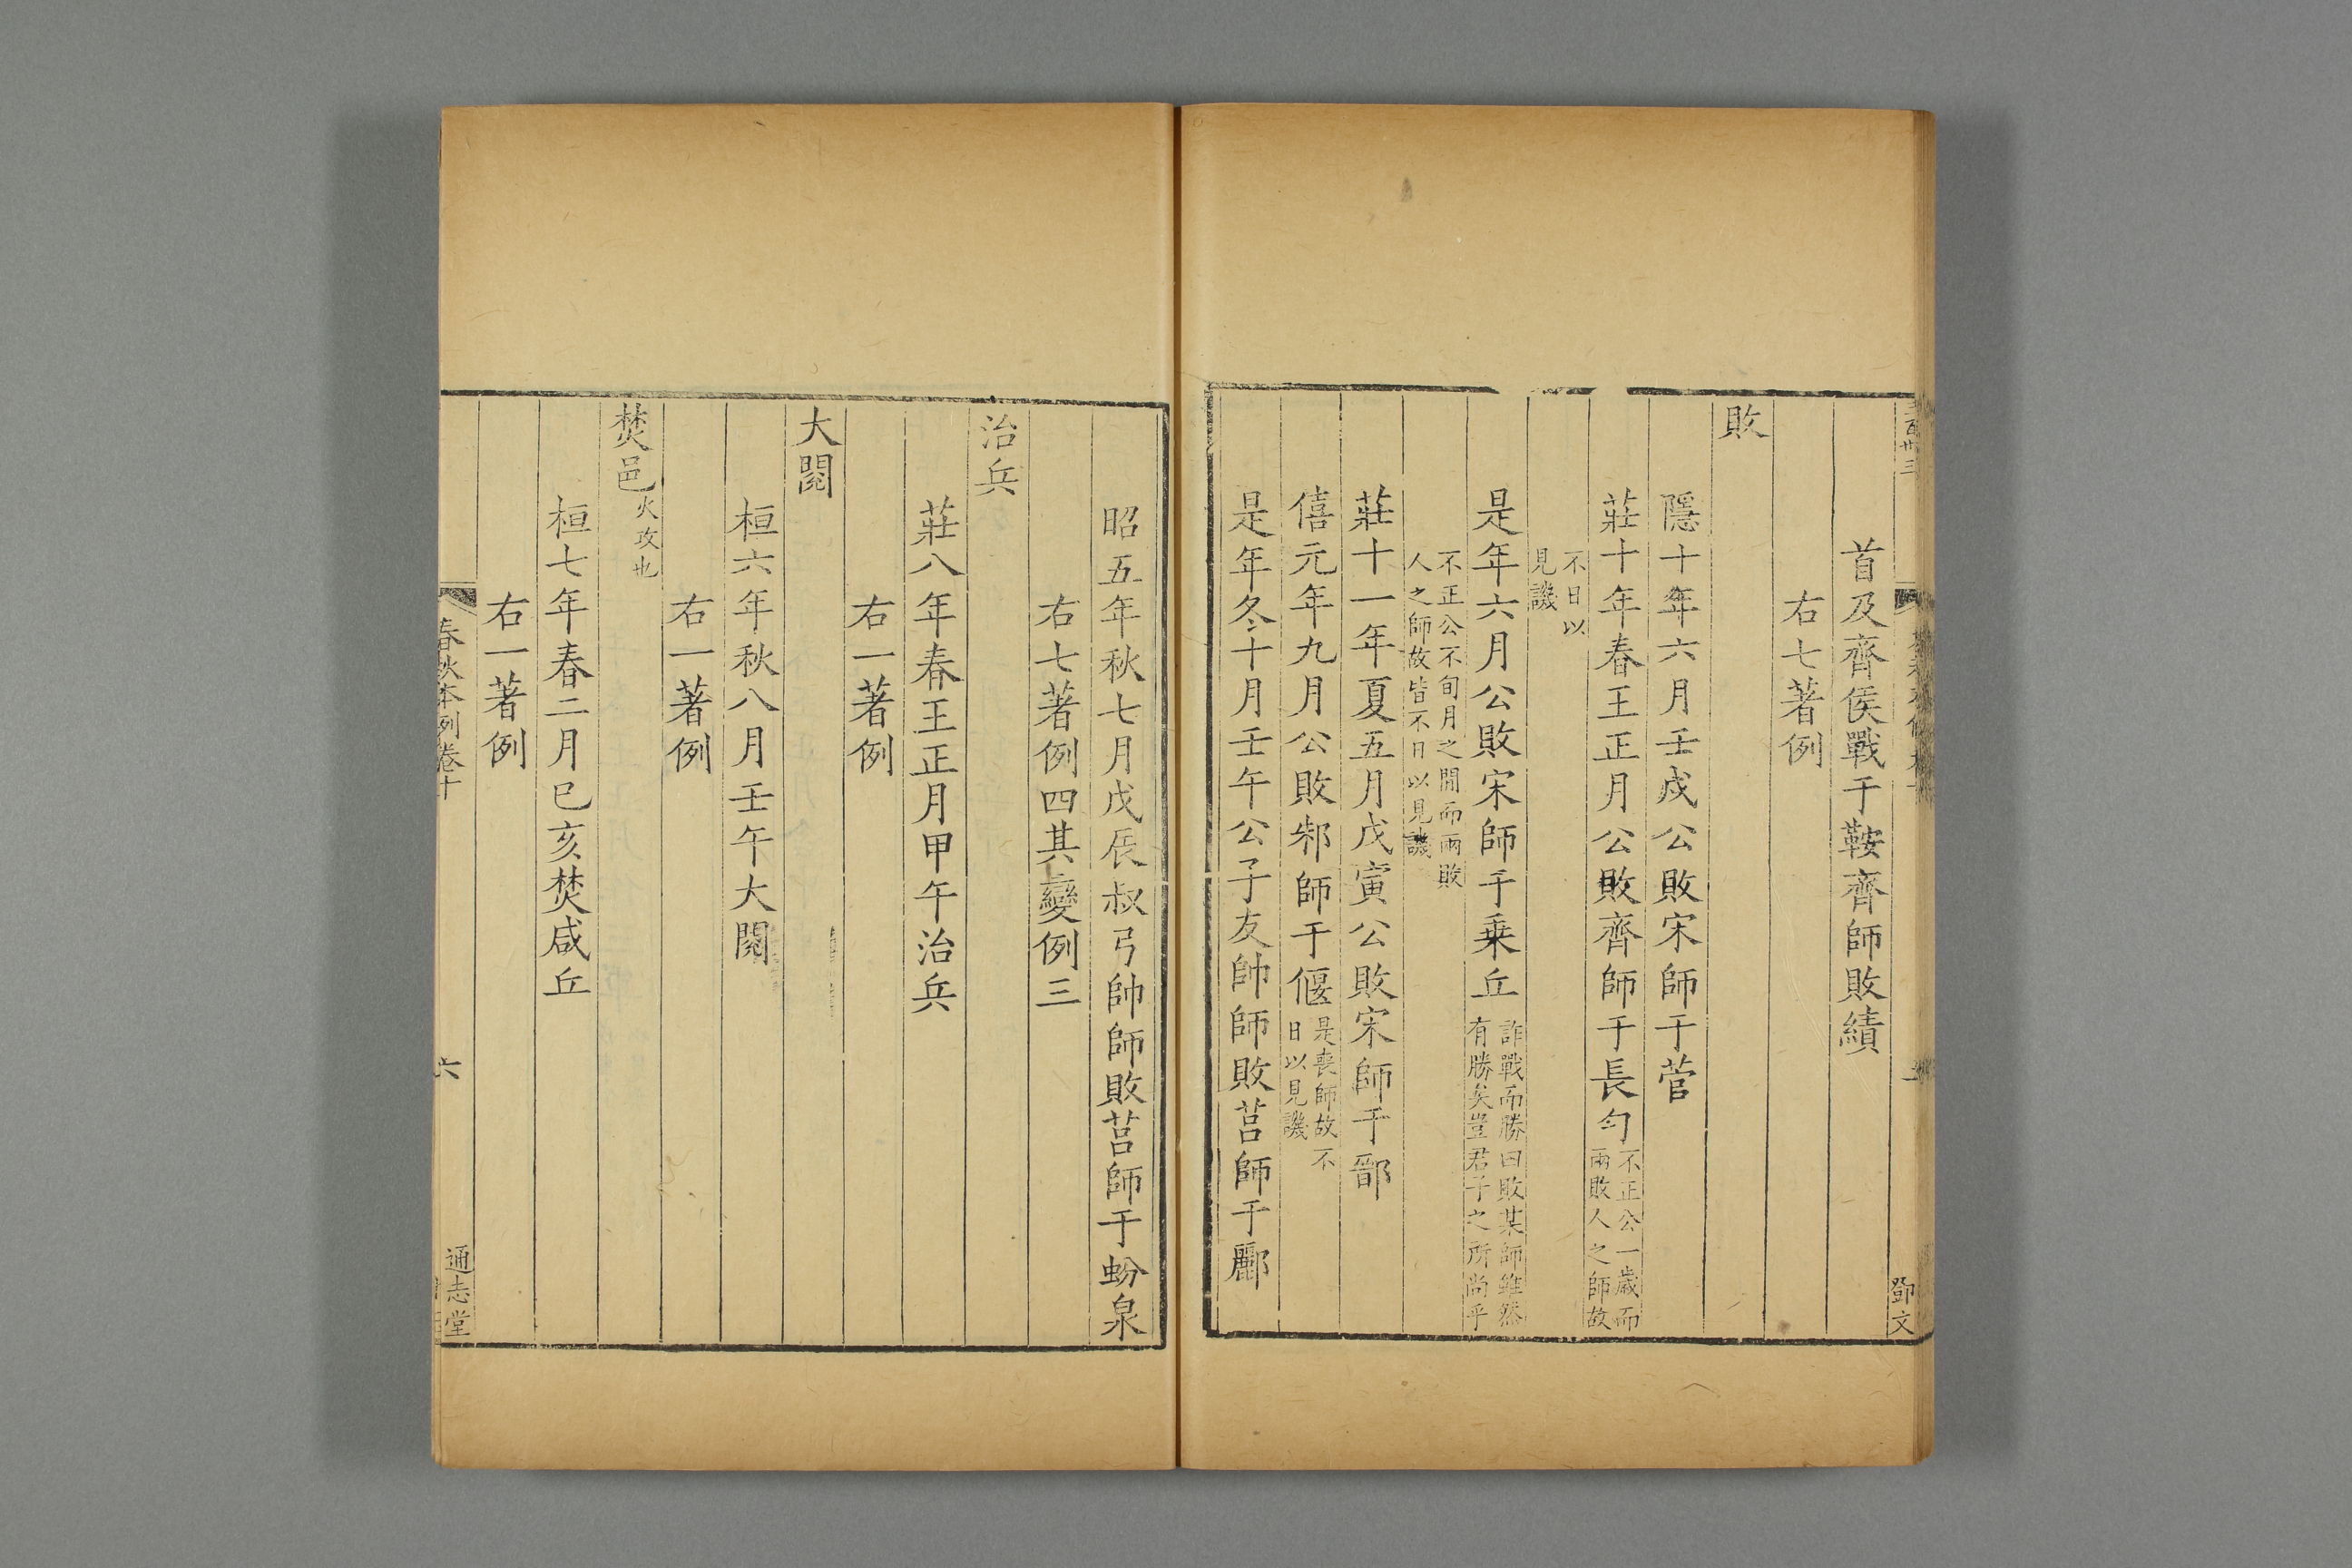 首及齊侯戰于鞍齊師敗績
右七著例
敗
隱十年六月壬戌公敗宋師于菅
莊十年春王正月公敗齊師于長勺不正公一歲而
兩敗人之師故
不日以
見譏
是年六月公敗宋師于乗丘詐戰而勝曰敗某師雖然
有勝矣豈君子之所尚乎
不正公不旬月之間而兩敗
人之師故皆不日以見譏
莊十一年夏五月戊寅公敗宋師于鄑
僖元年九月公敗邾師于偃是喪師故不
日以見譏
是年冬十月壬午公子友帥師敗莒師于酈
鄧文
昭五年秋七月戊辰叔弓帥師敗莒師于蚡泉
右七著例四其變例三
治兵
莊八年春王正月甲午治兵
右一著例
大閱
桓六年秋八月壬午大閱
右一著例
焚邑火攻也
桓七年春二月已亥焚咸丘
右一著例
春秋本例卷十
六
通志堂